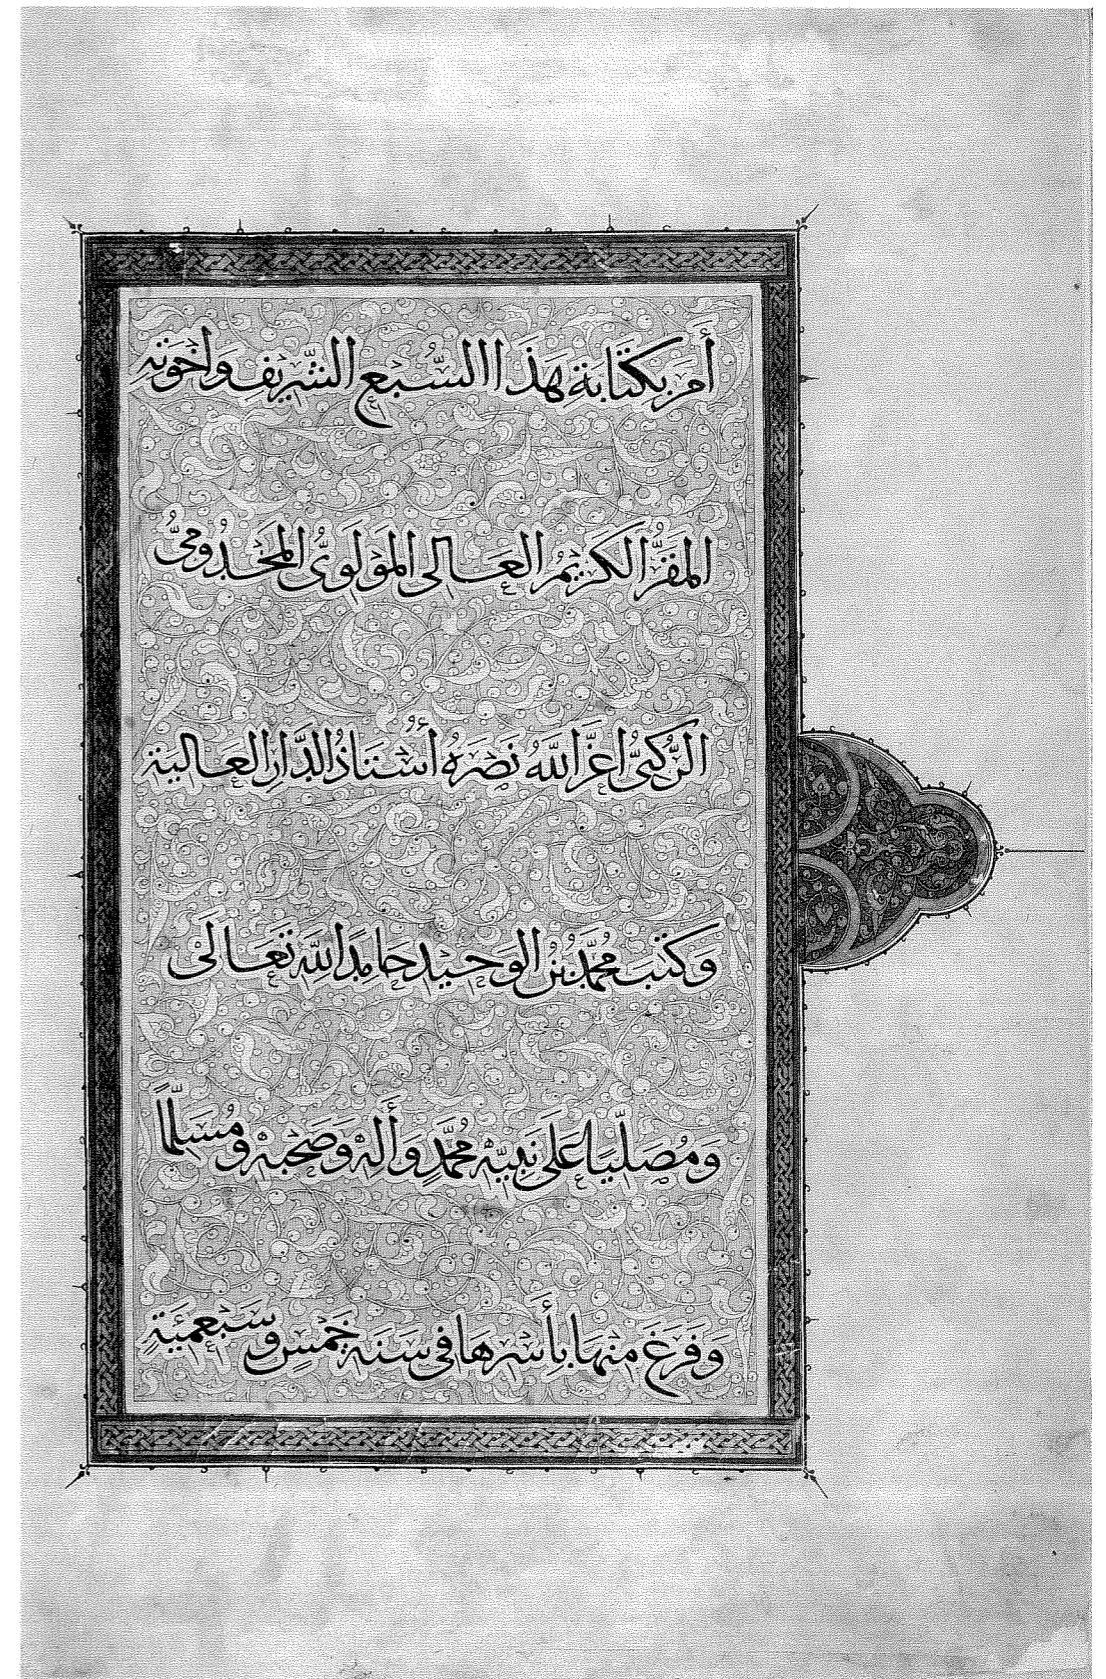 أمر بكتابة هذا السبع الشريف واخوته
المقر الكريم العالى المولوى المخدومى
الركنى اعز الله نصره أستاذ الدار العالية
وكتب محمد بن الوحيد حامدا لله تعالى
ومصليا على نبيه محمد وأله وصحبه ومسلما
وفرغ منها بأسرها فى سنة خمس وسبعمئة